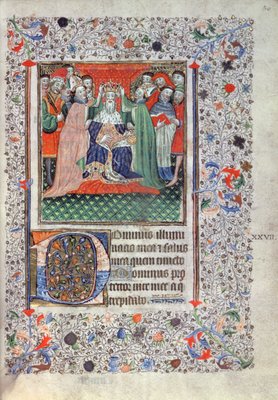 Dominus illumi
natio mea et salus
mea quem timebo
Dominus pro
tector vite mee a q
trepidabo
XXVII